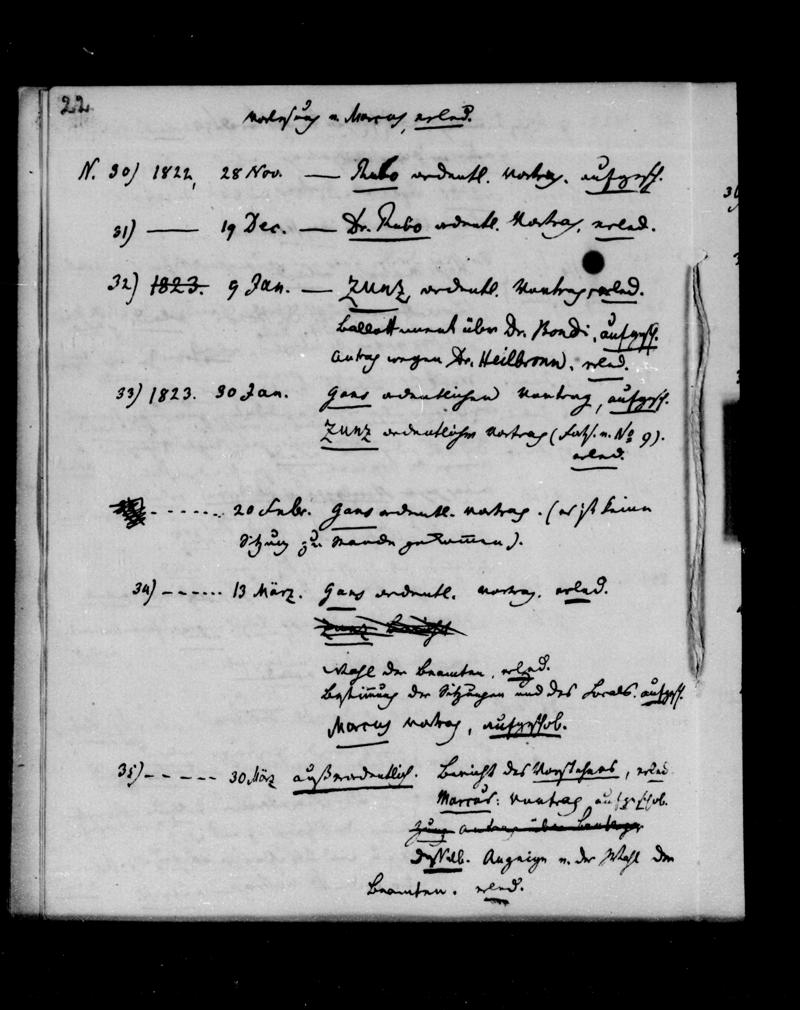 22
Vorlesung v. Marcus, erled.
N. 30) 1822, 28 Nov. — Rubo ordentl. Vortrag. aufgesch.
31) — 19 Dec. — Dr. Rubo ordentl. Vortrag, erled.
32) 1823. 9 Jan. — Zunz, ordentl. Vortrag, erled.
Ballottement über Dr. Bondi, aufgesch.
Antrag wegen Dr. Heilbronn, erled.
33) 1823. 30 Jan. Gans ordentlichen Vortrag, aufgesch.
Zunz ordentlicher Vortrag (Forts. v. No 9).
erled.
- - - - - - 20 Febr. Gans ordentl. Vortrag. (es ist keine
Sitzung zu Stande gekommen).
34) - - - - - - 13 März. Gans ordentl. Vortrag. erled.
Zunz Bericht
Wahl der Beamten, erled.
Bestimmung der Sitzungen und des Locals. aufgesch.
Marcus Vortrag, aufgeschob.
35) - - - - - 30 März außerordentlich. Bericht des Vorstehers, erled.
Marcus: Vortrag aufgeschob.
Zunz Antrag über
Desselb. Anzeige v. der Wahl der
Beamten. erled.